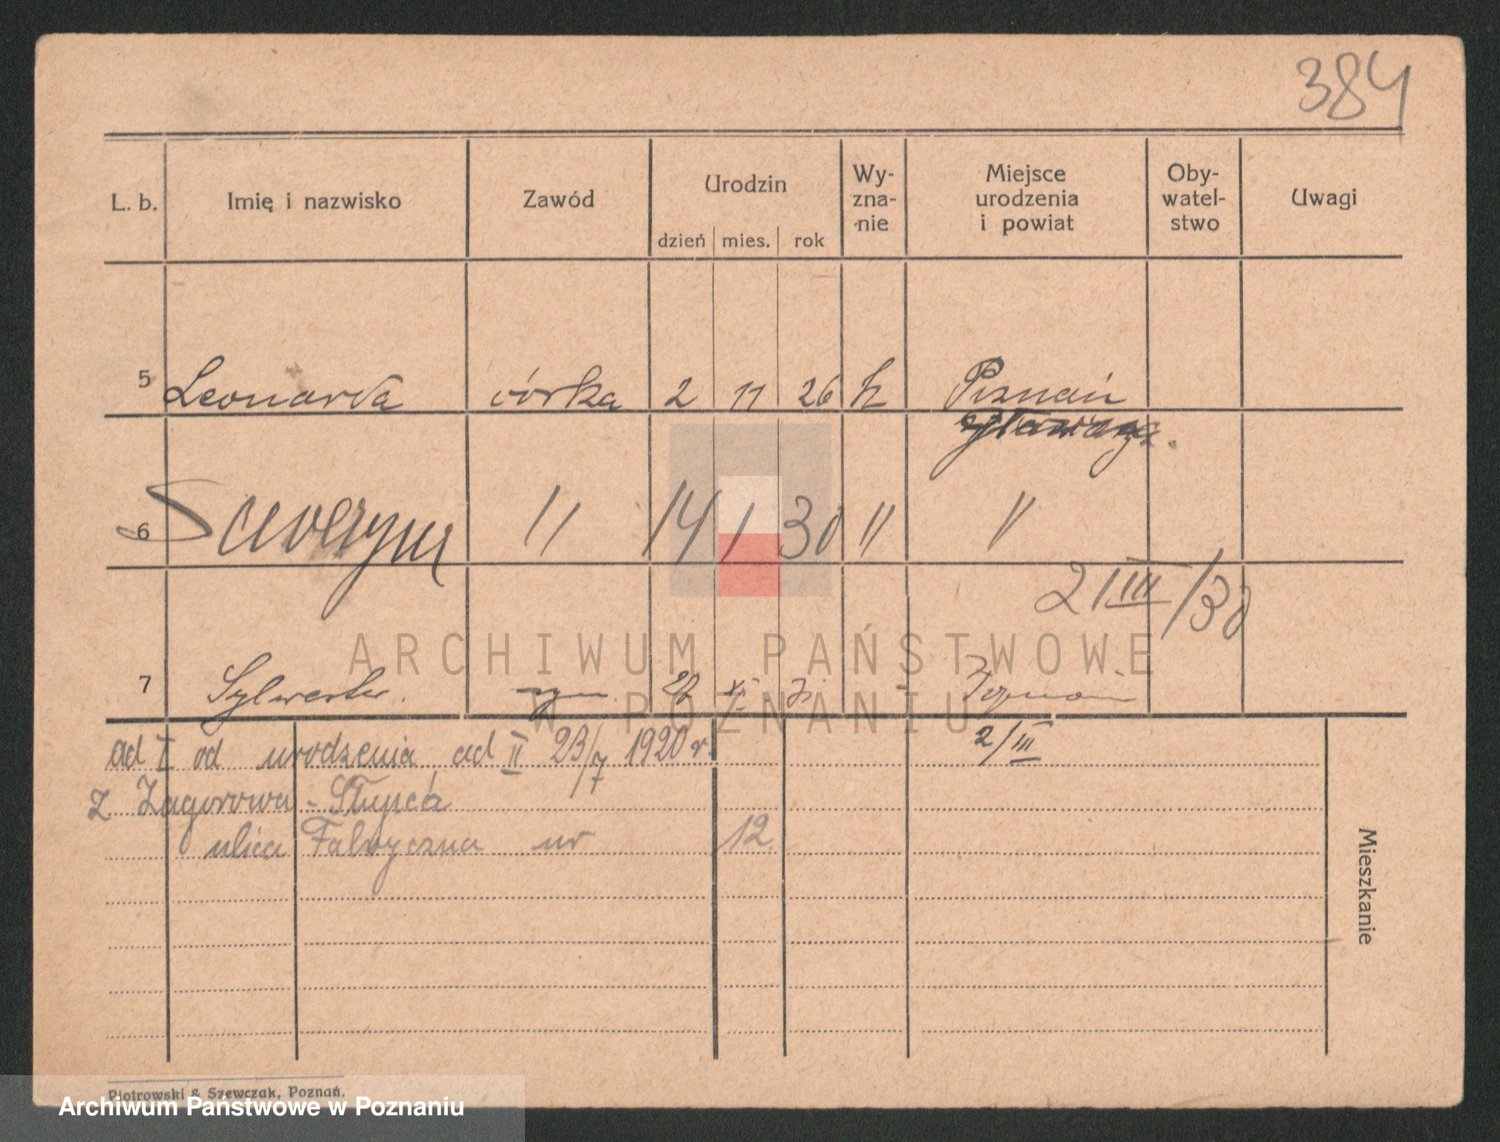 384
L. b. Imię i nazwisko Zawód Urodzin dzień mies. rok Wy-zna-nie Miejsce urodzenia i powiat Oby-watel-stwo Uwagi
5 Leonarda córka 2 11 26 k Poznań
6 Seweryna 11 14 1 30 11 11
21 III/30
7 Sylwester syn XI Poznań
2/III
ad I od urodzenia, ad II 23/7 1920 r.
z Zagorowa - Słupca
ulica Fabryczna nr 12.
Mieszkanie
Piotrowski & Szewczak, Poznań.
ARCHIWUM PAŃSTWOWE
W POZNANIU
Archiwum Państwowe w Poznaniu